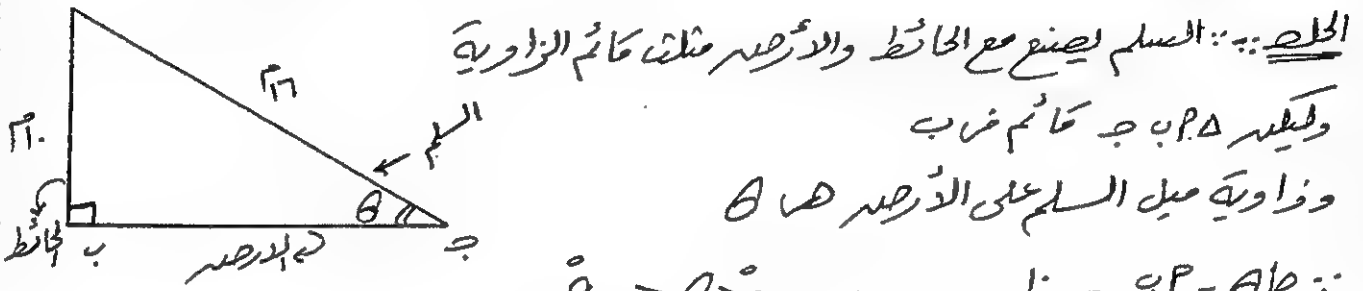 الحل :: ∵ السلم يصنع مع الحائط والأرض مثلث قائم الزاوية
وليكن △ أ ب جـ قائم في ب
وزاوية ميل السلم على الأرض هي θ
١٦م
السلم
١٠م
θ
الحائط
ب
الأرض
جـ